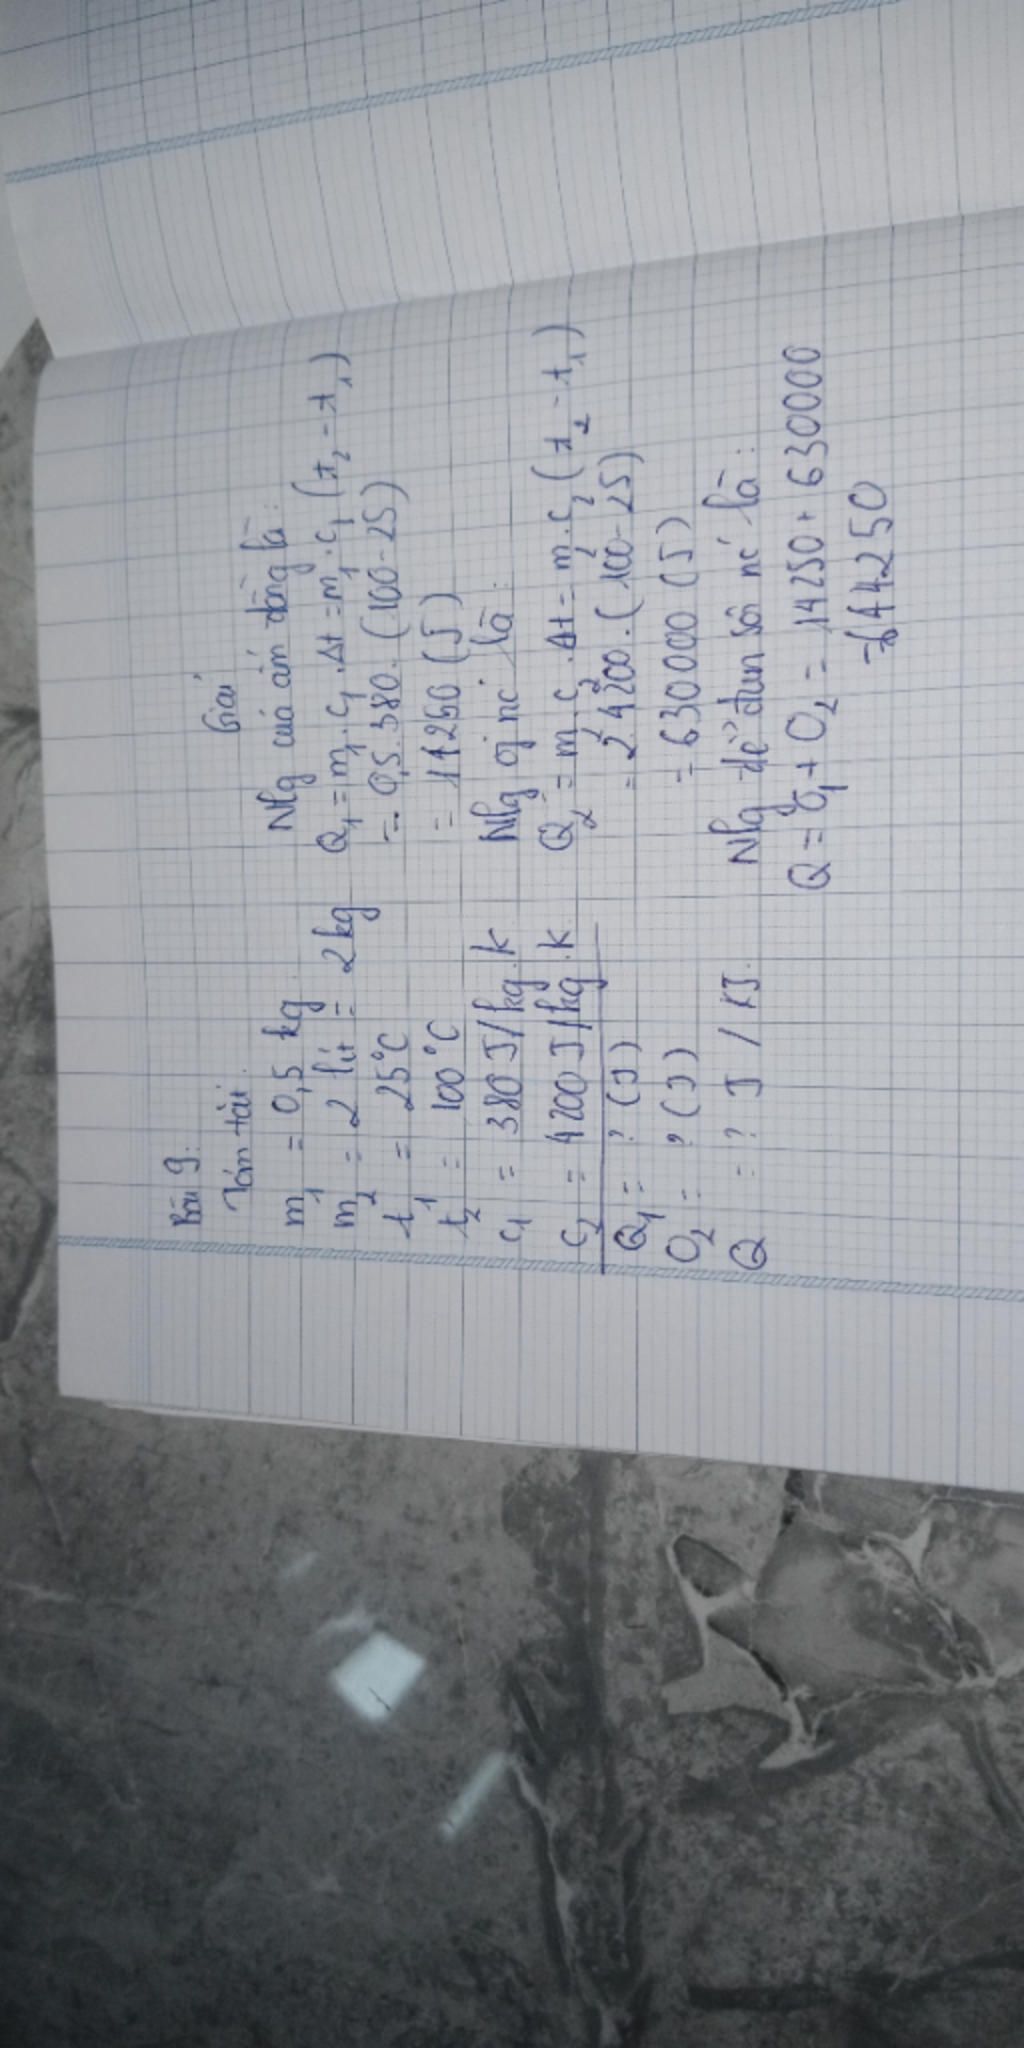 Bài 9:
Tóm tắt
m1 = 0,5 kg
m2 = 2 lít = 2kg
t1 = 25°C
t2 = 100°C
c1 = 380 J/kg.k
c2 = 4200 J/kg.k
Q1 = ? (J)
Q2 = ? (J)
Q = ? J / KJ.
Giải
Nlg của ấm đồng là:
Q1 = m1.c1.Δt = m1.c1 (t2 - t1)
= 0,5.380.(100-25)
= 14250 (J)
Nlg of nc' là:
Q2 = m2.c2.Δt = m2.c2 (t2 - t1)
= 2.4200.(100-25)
= 630000 (J)
Nlg để đun sôi nc' là:
Q = Q1 + Q2 = 14250 + 630000
= 644250